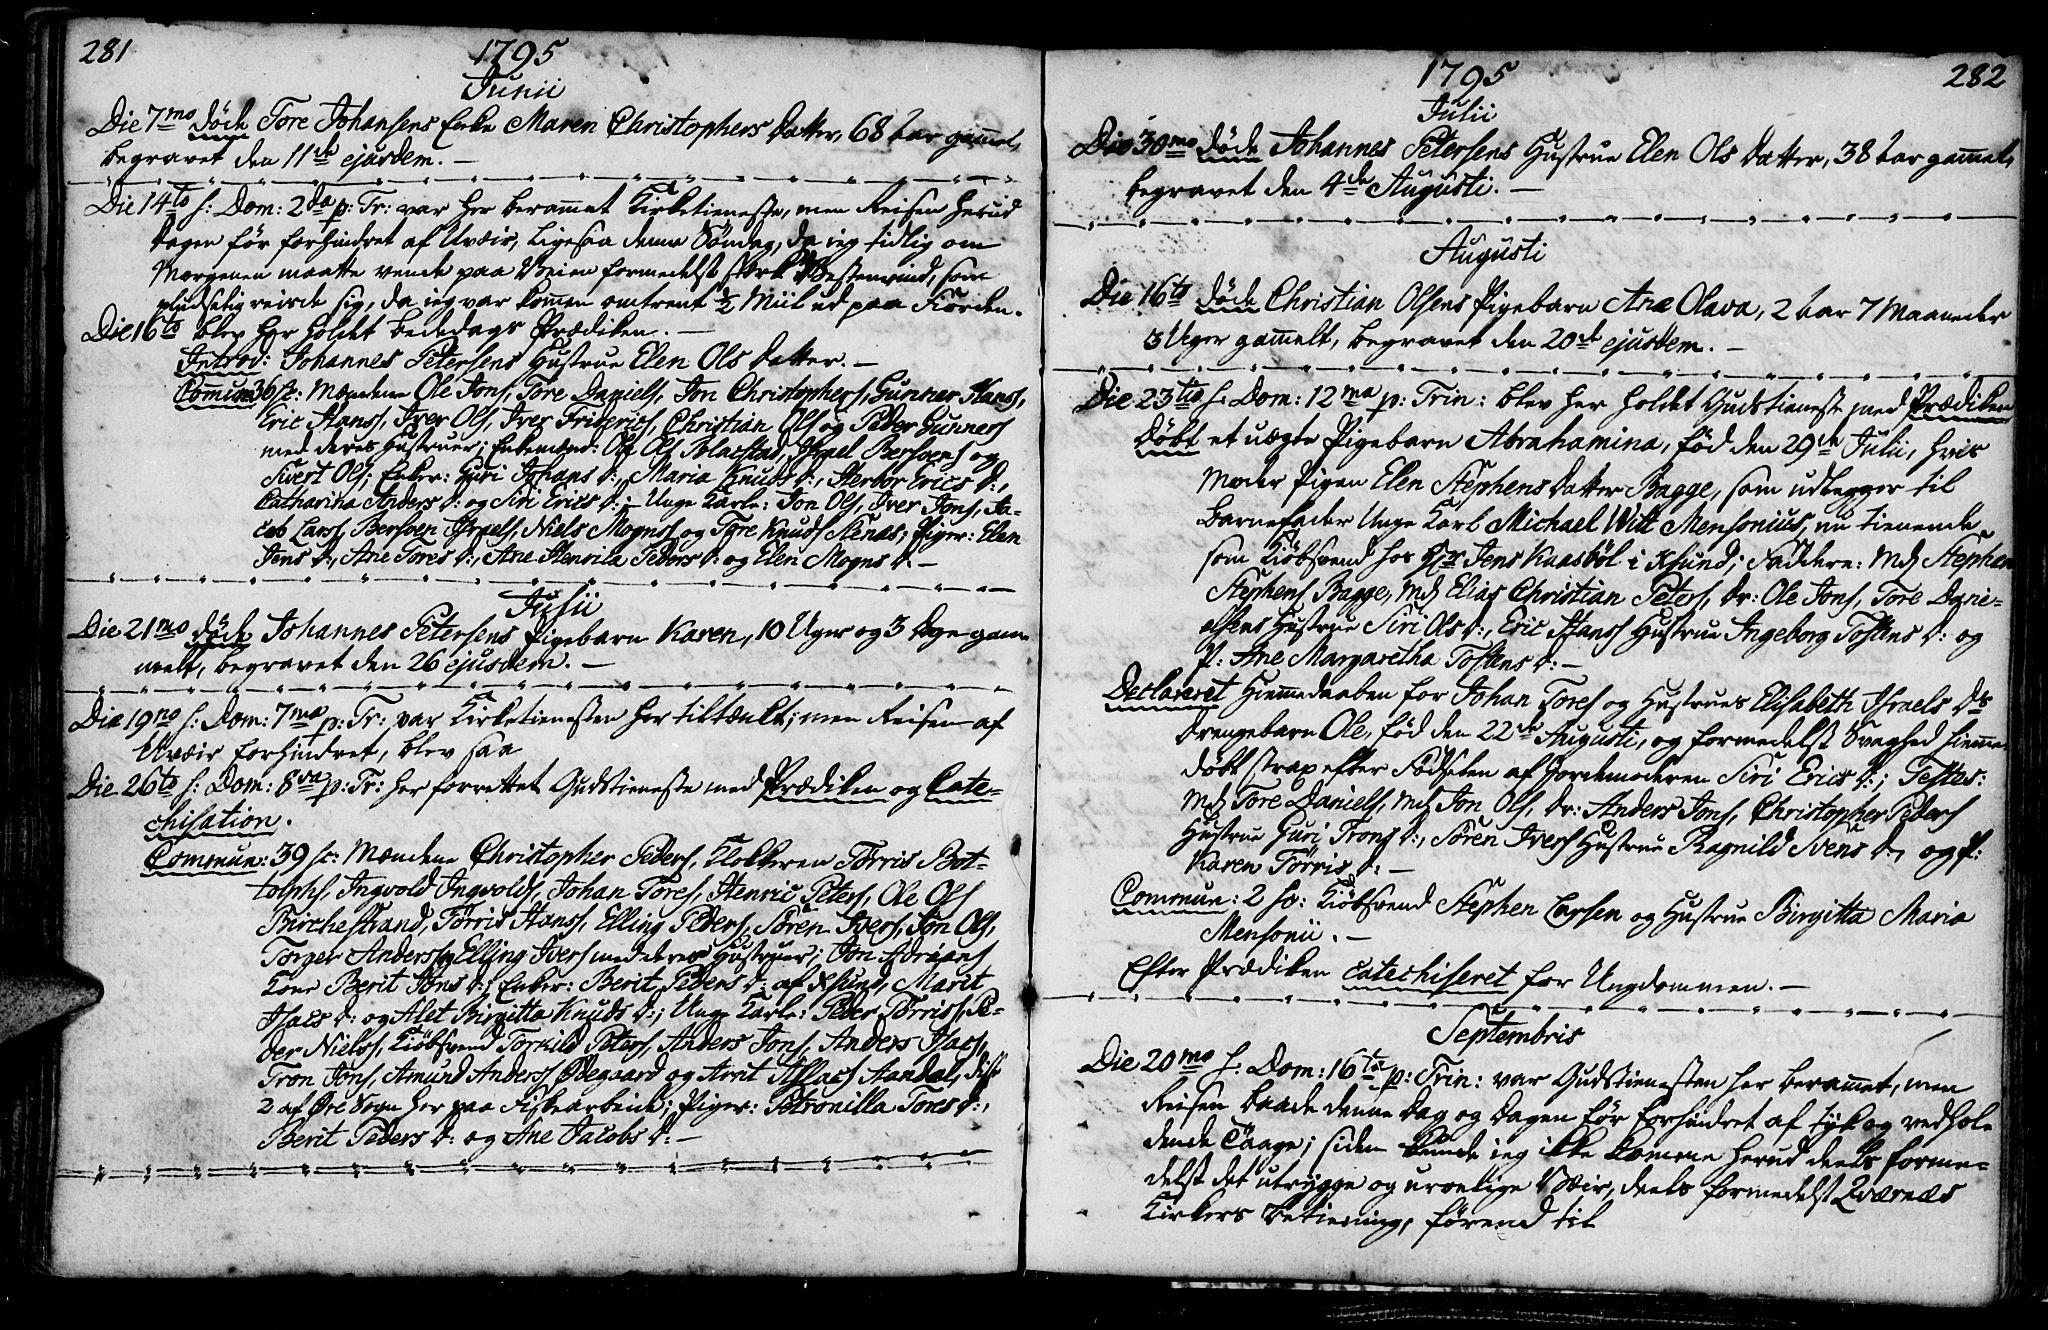 281
1795
Junii
Die 7mo døde Tore Johansens Enke Maren Christophers Datter, 68 Aar gammel,
begravet den 11te ejusdem. –
Die 14to s: Dom: 2da p: Tr: var her berammet Kirketieneste, men Reisen herud
Dagen før forhindret af Uveir, ligesaa denne Søndag, da ieg tidlig om
Morgenen maatte vende paa Veien formedelst stærk Vestenvind, som
pludselig reisde sig, da ieg var kommen omtrent ½ Miil ud paa Fiorden.
Die 16to blev her holdet Bededags Prædiken. –
Introd: Johannes Petersens Hustrue Elen Ols Datter. –
Commun: 36 sc: Mændene Ole Jons, Tore Daniels, Jon Christophers, Gunner Hans,
Eric Hans, Iver Ols, Iver Friderics, Christian Ols og Peder Gunners
med deres Hustruer; Enkemænd: Ole Ols Blaestad, Israel Bersvens og
Sivert Ols; Enker: Guri Johans D:, Maria Knuds D:, Herbor Erics D:,
Catharina Anders D: og Siri Erics D:; Unge Karle: Jon Ols, Iver Jons, Ja-
cob Lars, Bersven Israels, Niels Mogns og Tore Knuds Stenes; Piger: Elen
Jens D:, Ane Tores D:, Ane Henrica Peders D: og Elen Mogns D: –
Julii
Die 21mo døde Johannes Petersens Pigebarn Karen, 10 Uger og 3 Dage gam-
melt, begravet den 26 ejusdem. –
Die 19no s: Dom: 7ma p: Tr: var Kirketienesten her tiltænkt; men Reisen af
Uveir forhindret, blev saa
Die 26to s: Dom: 8va p: Tr: her forrettet Gudstieneste med Prædiken og Cate-
chisation.
Commun: 39 sc: Mændene Christopher Peders, Klokkeren Tørris Bot-
tolphs, Ingvold Ingvolds, Johan Tores, Henric Peters, Ole Ols
Birchestrand, Tørris Hans, Elling Peders, Sören Ivers, Jon Ols,
Torger Anders, Elling Ivers med deres Hustruer; Jon Adrians
Kone Berit Jons D:; Enker: Berit Peders D: af Xsund, Marit
Isacs D: og Alet Birgitta Knuds D:; Unge Karle: Peder Tørris, Pe-
der Niels, Kiöbsvend Torkild Peters, Anders Jons, Anders Isacs,
Tron Jons, Amund Anders Ødegaard og Arnt Aslacs Aandal, disse
2 af Øre Sogn her paa Fiskearbeide; Piger: Petronilla Tores D:,
Berit Peders D: og Ane Jacobs D: –
1795
282
Julii
Die 30mo døde Johannes Petersens Hustrue Elen Ols Datter, 38 Aar gammel,
begravet den 4de Augusti. –
Augusti
Die 16to døde Christian Olsens Pigebarn Ane Olava, 2 Aar 7 Maaneder
3 Uger gammelt, begravet den 20de ejusdem. –
Die 23tio s: Dom: 12ma p: Trin: blev her holdet Gudstieneste med Prædiken
Döbt et uægte Pigebarn Abrahamina, fød den 29de Julii, hvis
Moder Pigen Elen Stephens Datter Bagge, som udlegger til
Barnefader Unge Karl Michael Witt Mensonius, nu tienende
som Kiöbsvend hos Hr Jens Kaasböl i Xsund; Faddere: Md Stephen
Stephens Bagge, Md Elias Christian Peters, Dr: Ole Jons, Tore Dani-
elsens Hustrue Siri Ols D:, Eric Hans Hustrue Ingeborg Tostens D: og
P: Ane Margaretha Tostens D: –
Declareret Hiemmedaaben for Johan Tores og Hustrues Elisabeth Israels Ds
Drengebarn Ole, fød den 22de Augusti, og formedelst Svaghed hiemme-
döbt strax efter Födselen af Jordemoderen Siri Erics D:; Testes:
Md Tore Daniels, Md Jon Ols, Dr: Anders Jons, Christopher Peders
Hustrue Guri Trons D:, Sören Ivers Hustrue Ragnild Svens D:, og P:
Karen Tørris D: –
Commun: 2 sc: Kiöbsvend Stephen Larsen og Hustrue Birgitta Maria
Mensonii. –
Efter Prædiken catechiseret for Ungdommen. –
Septembris
Die 20mo s: Dom: 16ta p: Trin: var Gudstienesten her berammet, men
Reisen baade denne Dag og Dagen før forhindret af tyk og vedhol-
dende Taage; siden kunde ieg ikke komme herud deels forme-
delst det utrygge og uroelige Veir, deels formedelst Qværnæs
Kirkers betiening, førend til